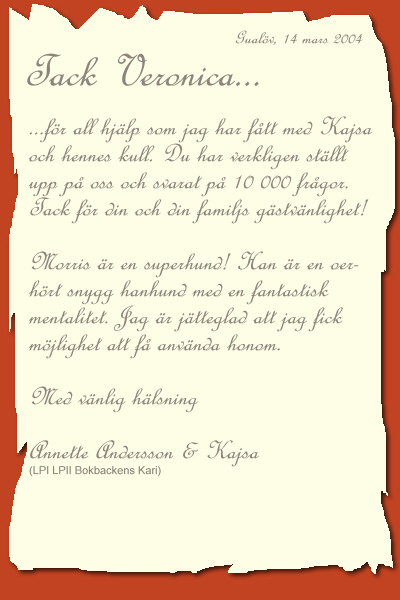 Gualöv, 14 mars 2004
Tack Veronica...
...för all hjälp som jag har fått med Kajsa
och hennes kull. Du har verkligen ställt
upp på oss och svarat på 10 000 frågor.
Tack för din och din familjs gästvänlighet!
Morris är en superhund! Han är en oer-
hört snygg hanhund med en fantastisk
mentalitet. Jag är jätteglad att jag fick
möjlighet att få använda honom.
Med vänlig hälsning
Annette Andersson & Kajsa
(LPI LPII Bokbackens Kari)